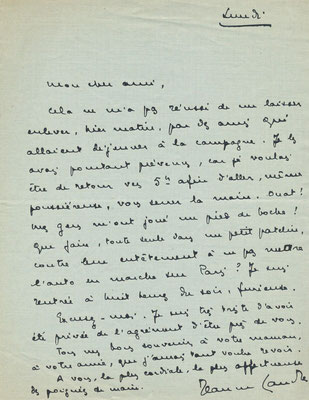 Lundi
Mon cher ami,
Cela ne m'a pas réussi de me laisser
enlever, hier matin, par des amis qui
allaient déjeuner à la campagne. Je les
avais pourtant prévenus, car je voulais
être de retour vers 5h afin d'aller, même
poussiéreuse, vous serrer la main. Ouat!
mes gens m'ont joué un pied de boche!
Que faire, toute seule dans un petit patelin,
contre leur entêtement à ne pas mettre
l'auto en marche sur Paris? Je suis
rentrée à huit heures du soir, furieuse.
Excusez-moi. Je suis très triste d'avoir
été privée de l'agrément d'être près de vous.
Tous mes bons souvenirs à votre maman,
à votre amie, que j'aurais tant voulu revoir.
A vous, la plus cordiale, la plus affectueuse
des poignées de main.
Jeanne